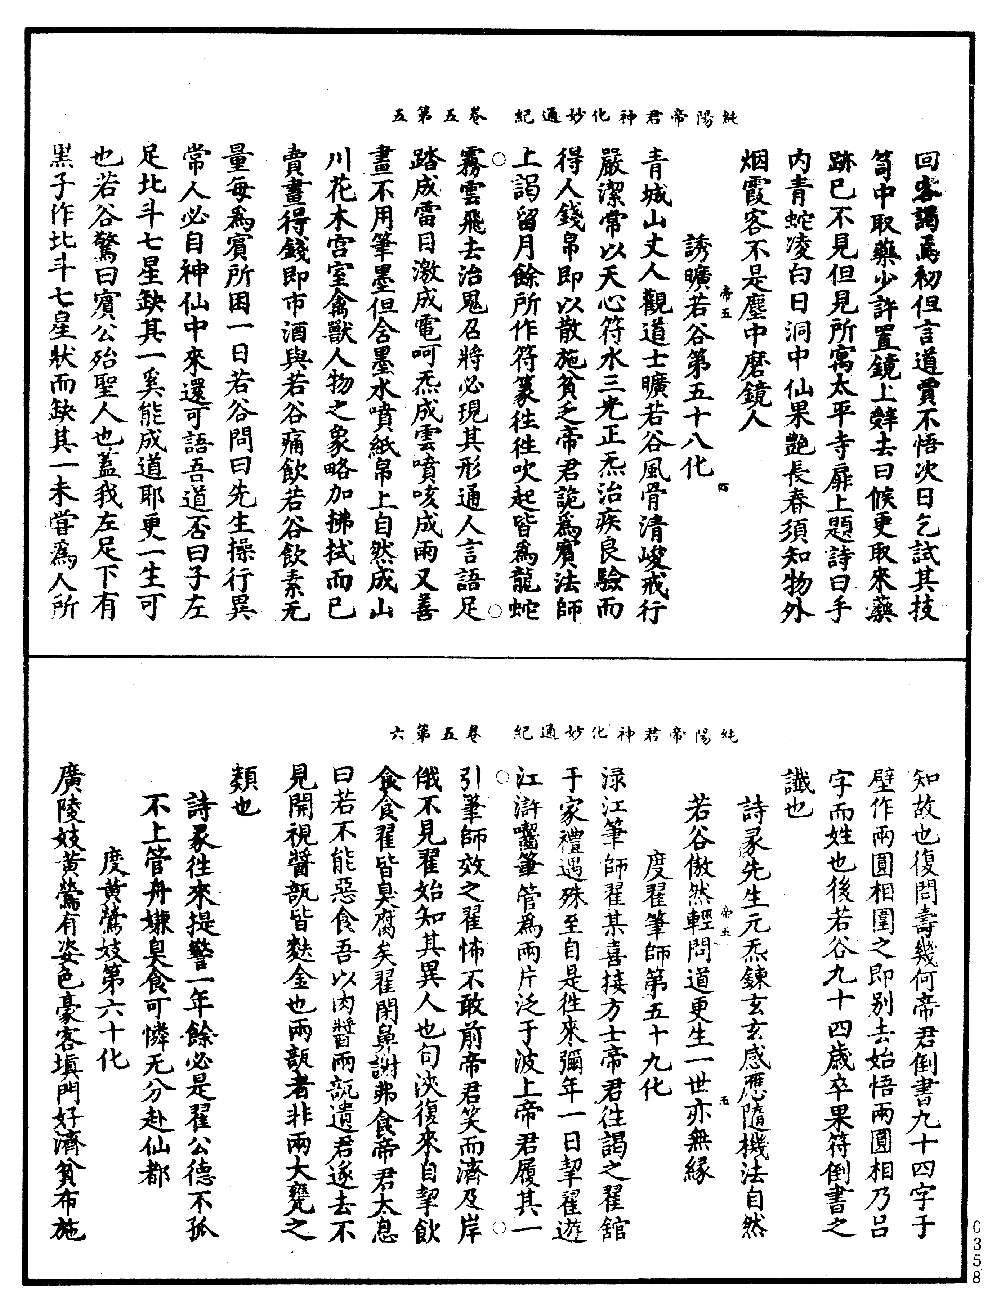 純陽帝君神化妙通紀　卷五第五
回客謁焉初但言道賈不悟次日乞試其技
笥中取藥少許置鏡上辤去曰候更取來藥
跡已不見但見所寓太平寺扉上題詩曰手
內青蛇凌白日洞中仙果艷長春須知物外
烟霞客不是塵中磨鏡人
誘曠若谷第五十八化
帝五
青城山丈人觀道士曠若谷風骨清峻戒行
嚴潔常以天心符水三光正炁治疾良驗而
得人錢帛即以散施貧乏帝君詭為賓法師
上謁留月餘所作符篆徃徃吹起皆為龍蛇
霧雲飛去治鬼召將必現其形通人言語足
踏成雷目激成電呵炁成雲噴咳成雨又善
畫不用筆墨但含墨水噴紙帛上自然成山
川花木宮室禽獸人物之象略加拂拭而已
賣畫得錢即市酒與若谷痛飲若谷飲素无
量每為賓所困一日若谷問曰先生操行異
常人必自神仙中來還可語吾道否曰子左
足北斗七星缺其一奚能成道耶更一生可
也若谷驚曰賓公殆聖人也蓋我左足下有
黑子作北斗七星狀而缺其一未嘗為人所
純陽帝君神化妙通紀　卷五第六
知故也復問壽幾何帝君倒書九十四字于
壁作兩圓相圍之即別去始悟兩圓相乃呂
字而姓也後若谷九十四歲卒果符倒書之
讖也
詩彖先生元炁鍊玄玄感應隨機法自然
若谷傲然輕問道更生一世亦無緣
度翟筆師第五十九化
渌江筆師翟某喜接方士帝君徃謁之翟舘
于家禮遇殊至自是徃來彌年一日挈翟遊
江滸囓筆管為兩片泛于波上帝君履其一
引筆師效之翟怖不敢前帝君笑而濟及岸
俄不見翟始知其異人也旬浹復來自挈飲
食食翟皆臭腐矣翟閉鼻謝弗食帝君太息
曰若不能惡食吾以肉醬兩瓿遺君遂去不
見開視醬瓿皆麩金也兩瓿者非兩大甕之
類也
詩彖徃來提警一年餘必是翟公德不孤
不上管舟嫌臭食可憐无分赴仙都
度黄鶯妓第六十化
廣陵妓黄鶯有姿色豪客塡門好濟貧布施
0358